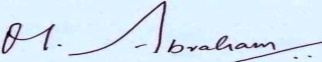 M. Abraham